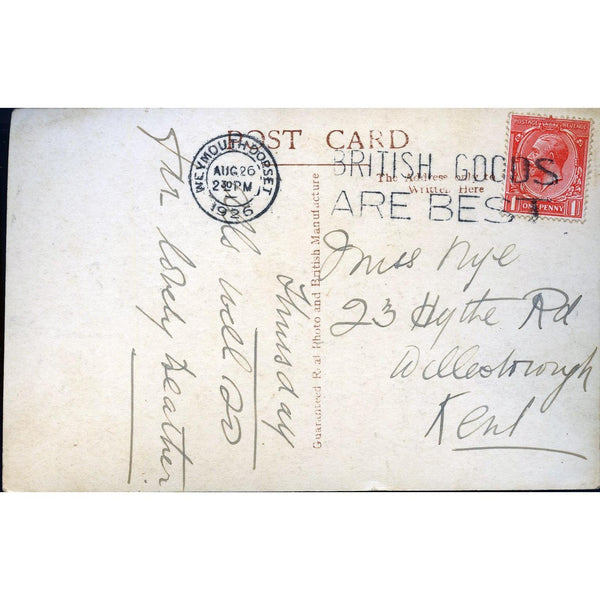 POST CARD
WEYMOUTH·DORSET
AUG 26
230PM
1926
BRITISH GOODS
ARE BEST
The Address to be
Written Here
POSTAGE REVENUE
1 ONE PENNY 1
Guaranteed Real Photo and British Manufacture
Miss Nye
23 Hythe Rd
Willesborough
Kent
Thursday
well so
far lovely weather